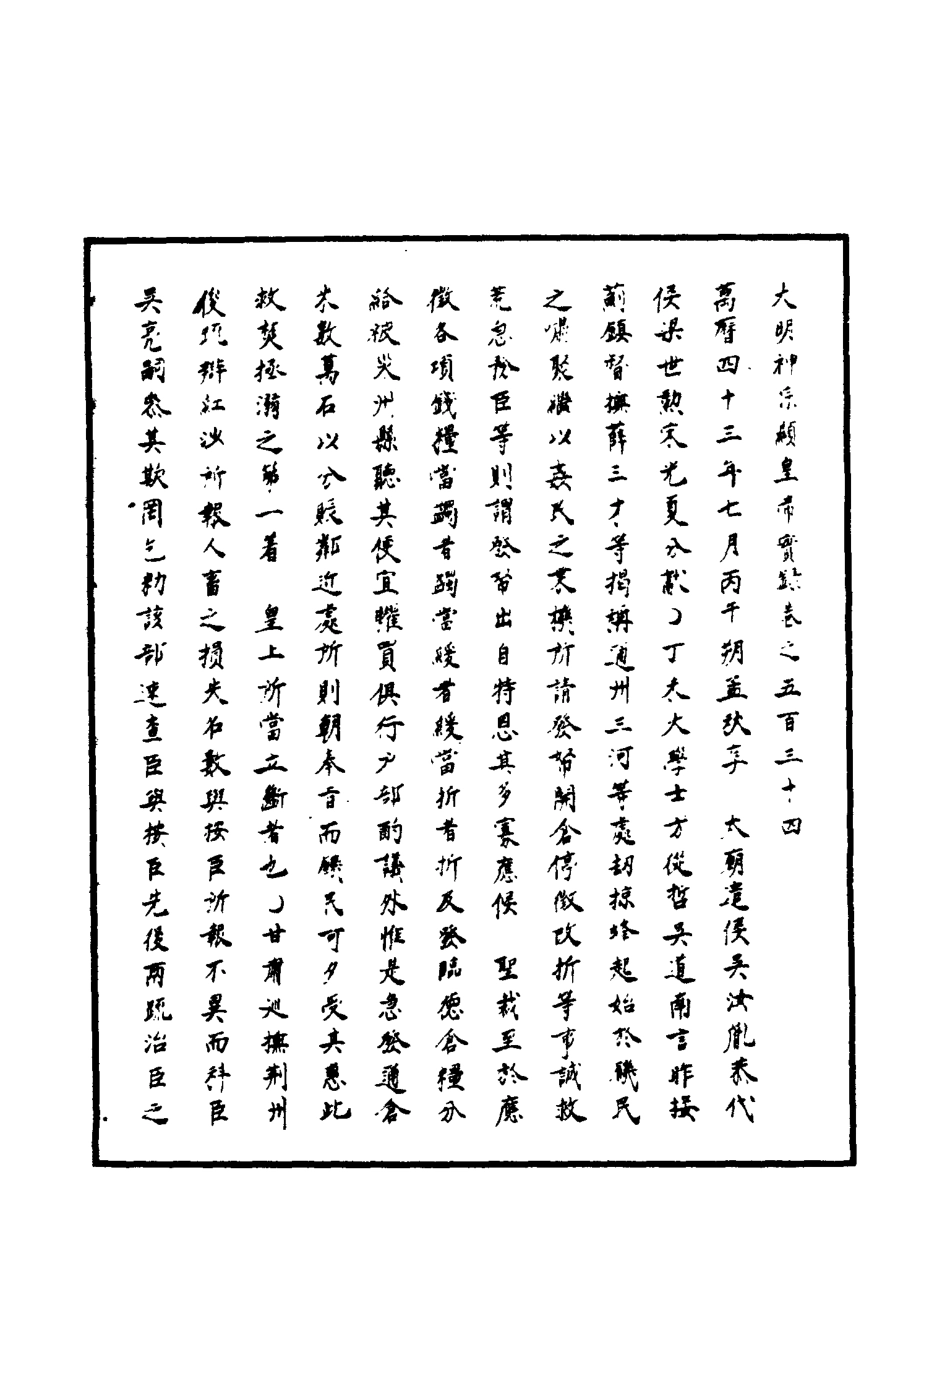 大明神宗顯皇帝實錄卷之五百三十四
萬曆四十三年七月丙午朔孟秋享　太廟遣侯吳汝胤恭代
侯梁世勳宋光夏分獻〇丁未大學士方從哲吳道南言昨接
薊鎮督撫薛三才等揭稱通州三河等處刼掠蜂起始於饑民
之嘯聚繼以姦民之
撫所請發帑開倉停徵改折等事誠救
荒急務臣等則謂發帑出自特恩其多寡應候　聖裁至於應
徵各項錢糧當蠲者蠲當緩者緩當折者折及發臨德倉糧分
給被災州縣聽其便宜糴買俱行戶部酌議外惟是急發通倉
米數萬石以分賑鄰近處所則朝奉旨而饑民可夕受其惠此
救焚拯溺之第一着　皇上所當立斷者也〇甘肅巡撫荆州
俊疏辯紅沙所報人畜之損失名數與按臣所報不異而科臣
吳亮嗣參其欺罔乞勑該部速查臣與按臣先後兩疏治臣之